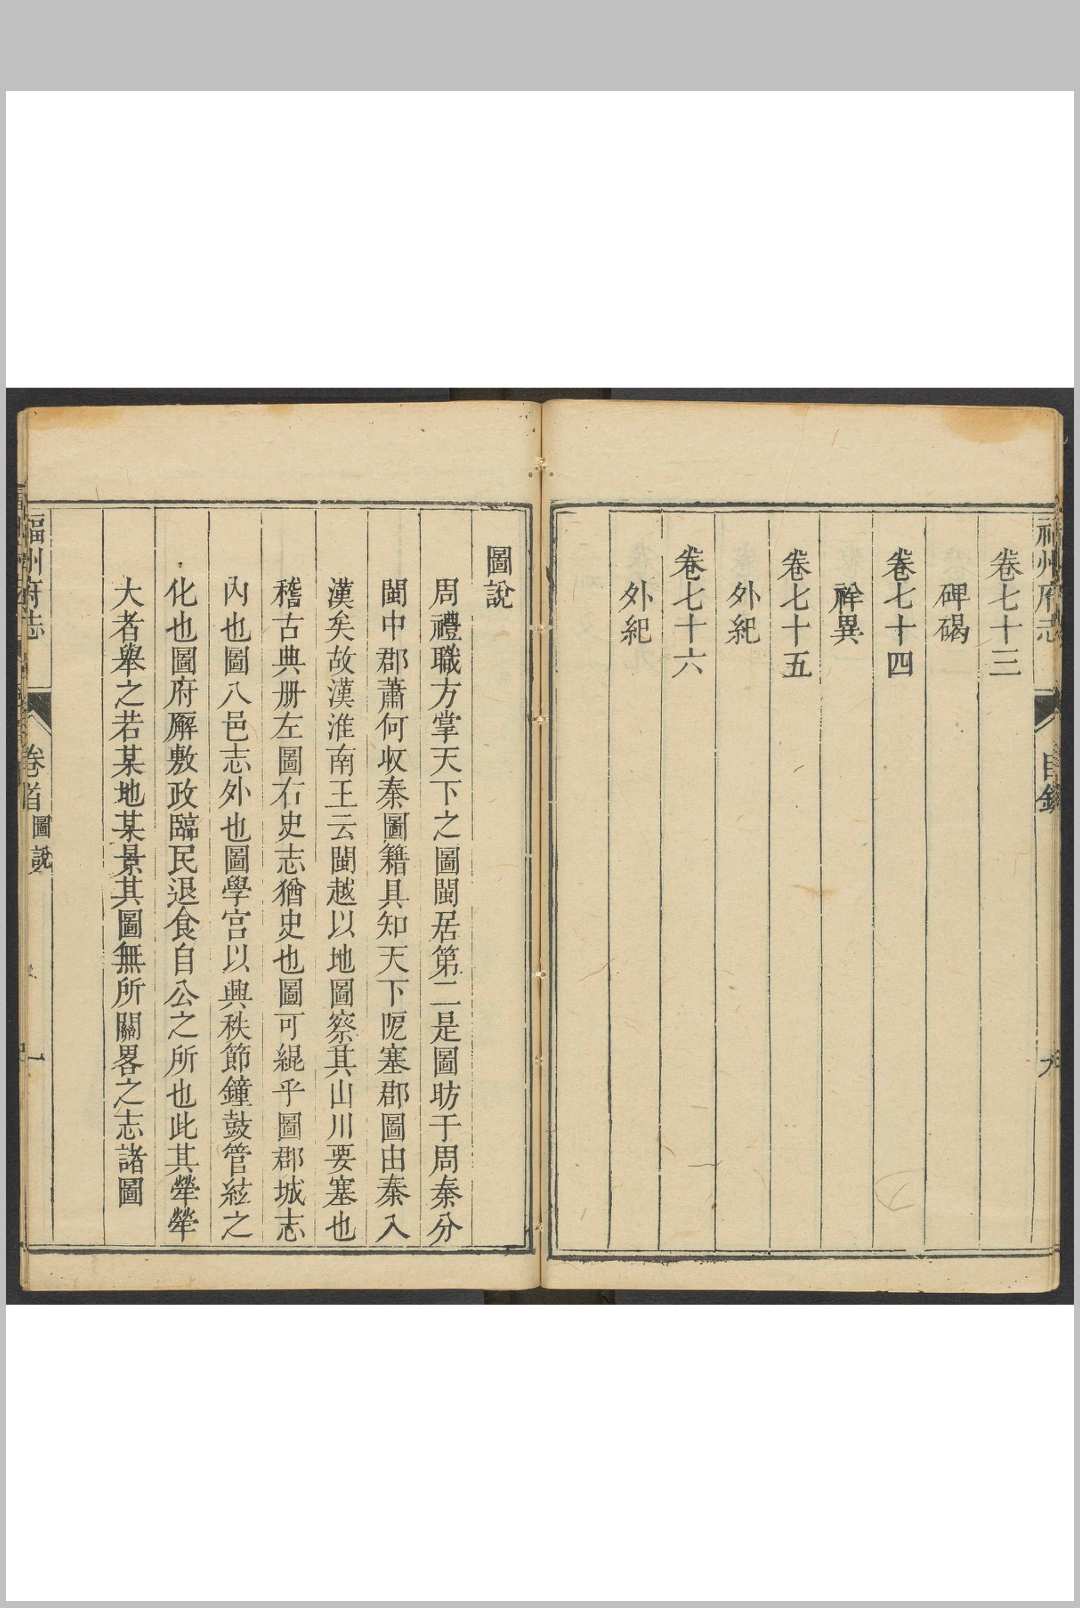 福州府志
目錄
卷七十三
碑碣
卷七十四
祥異
卷七十五
外紀
卷七十六
外紀
圖說
周禮職方掌天下之圖閩居第二是圖昉于周秦分
閩中郡蕭何收秦圖籍具知天下阨塞郡圖由秦入
漢矣故漢淮南王云閩越以地圖察其山川要塞也
稽古典册左圖右史志猶史也圖可緄乎圖郡城志
內也圖八邑志外也圖學宮以興秩節鐘鼓管絃之
化也圖府廨敷政臨民退食自公之所也此其犖犖
大者舉之若某地某景其圖無所關畧之志諸圖
福州府志
卷首
圖說
一